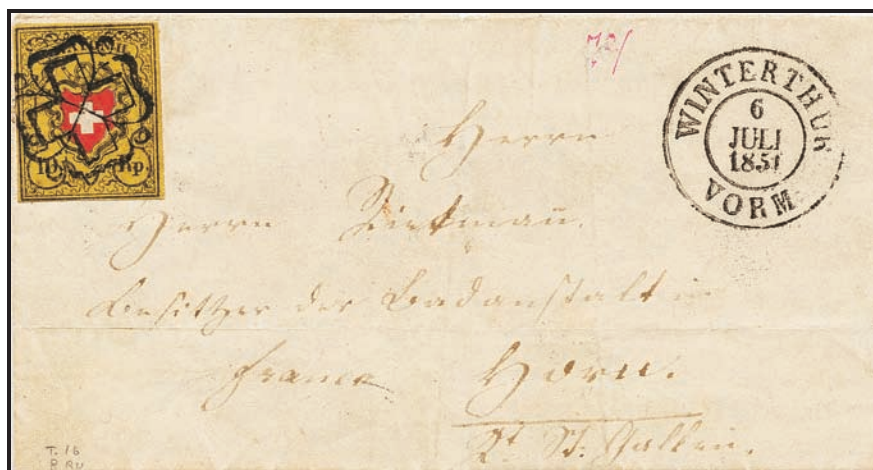 10 Rp.
WINTERTHUR
6
JULI
1851
VORM.
Herrn
Herrn Dietmañ.
Besitzer der Badanstalt in
franco Horn.
Kt. St. Gallen.
T. 16